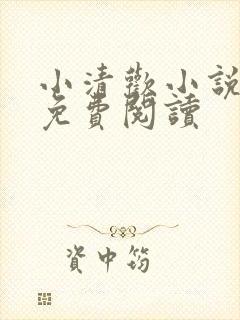 小清歡小說
免費閱讀
資中筠